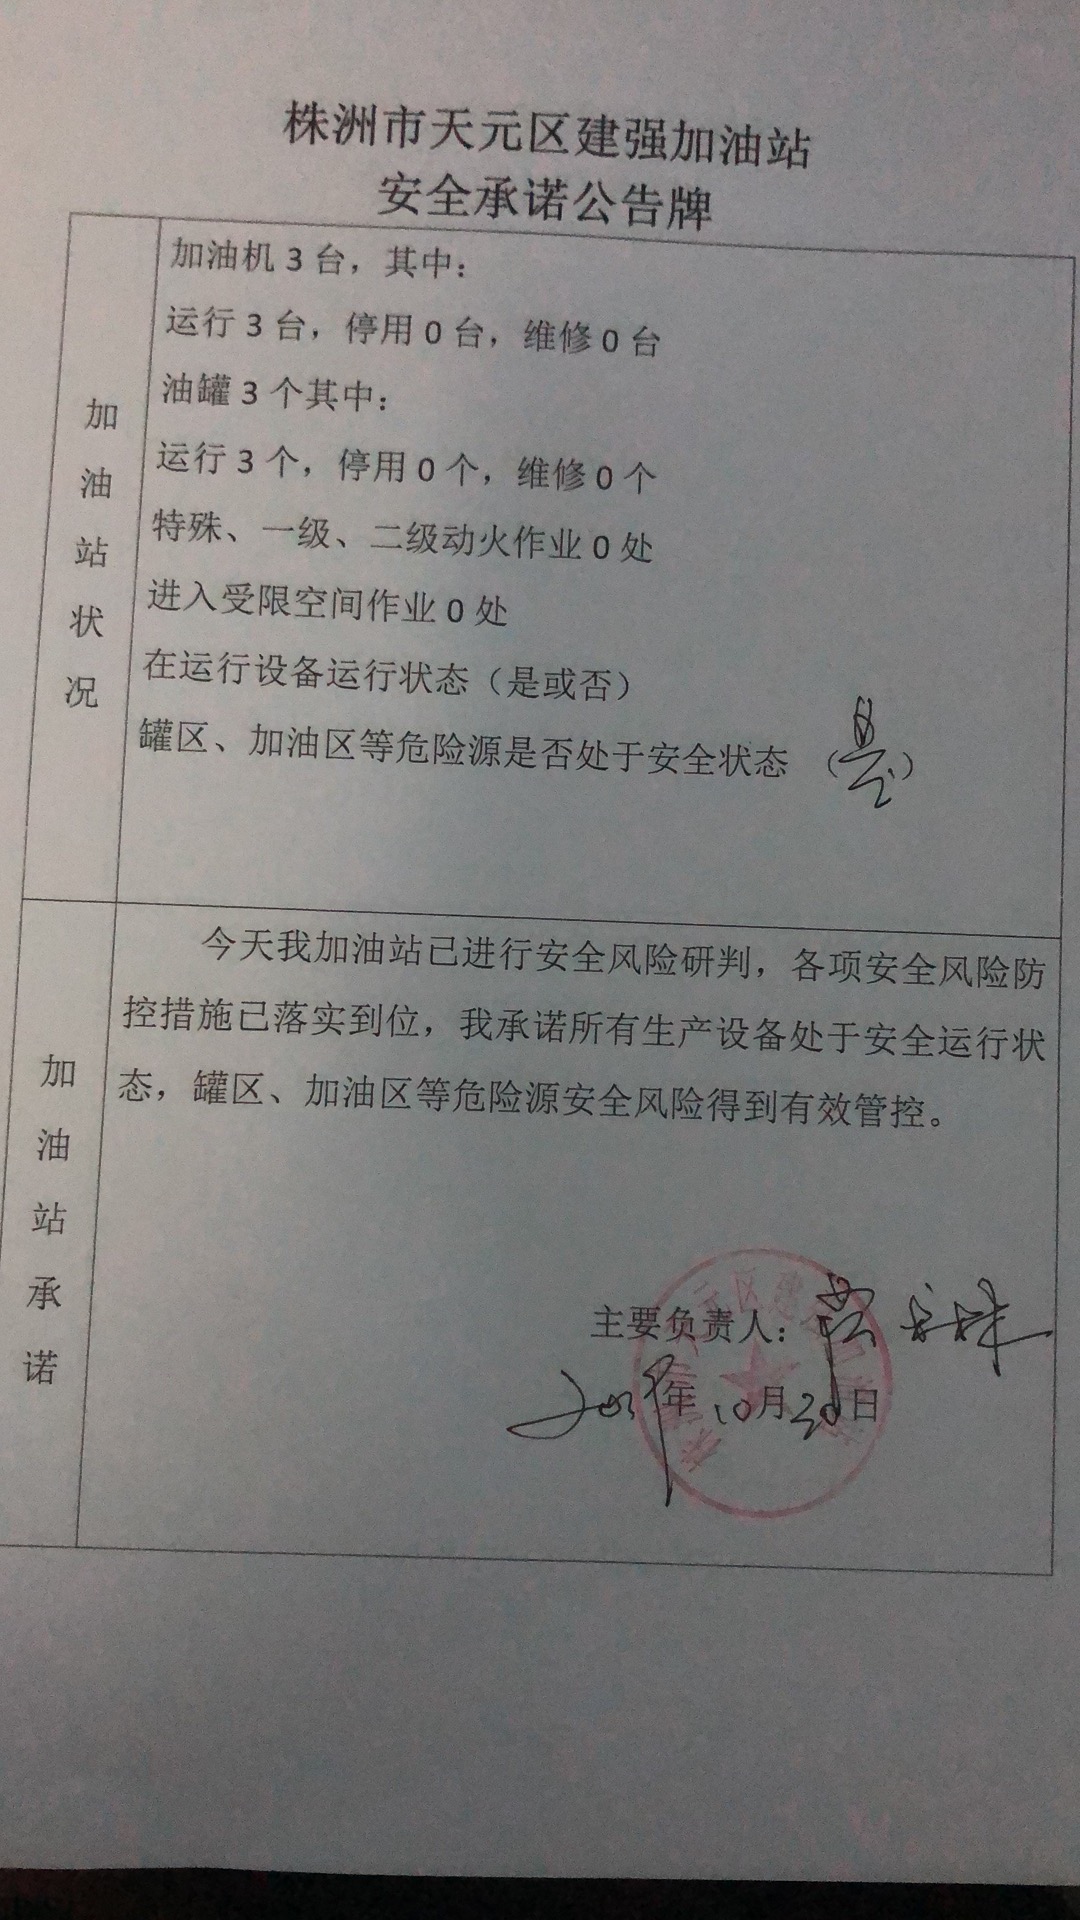 株洲市天元区建强加油站
安全承诺公告牌
加油站状况
加油机 3 台，其中：
运行 3 台，停用 0 台，维修 0 台
油罐 3 个其中：
运行 3 个，停用 0 个，维修 0 个
特殊、一级、二级动火作业 0 处
进入受限空间作业 0 处
在运行设备运行状态（是或否）
罐区、加油区等危险源是否处于安全状态 （是）
加油站承诺
今天我加油站已进行安全风险研判，各项安全风险防
控措施已落实到位，我承诺所有生产设备处于安全运行状
态，罐区、加油区等危险源安全风险得到有效管控。
主要负责人：
年 10月20日
元区建